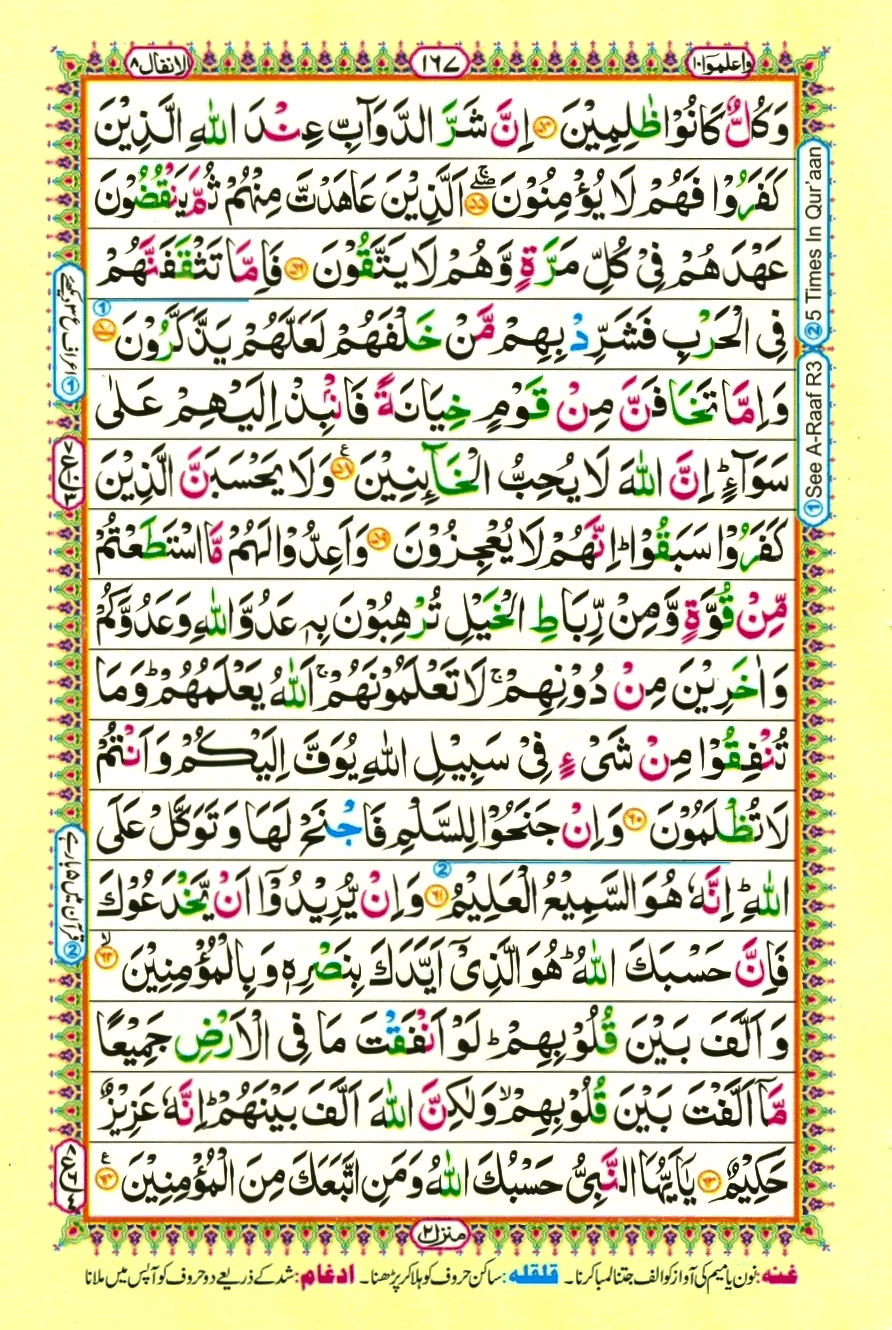 واعلموا١٠
١٦٧
الانفال٨
وَكُلٌّ كَانُوْا ظٰلِمِيْنَ ۝٥٤ اِنَّ شَرَّ الدَّوَآبِّ عِنْدَ اللّٰهِ الَّذِيْنَ
كَفَرُوْا فَهُمْ لَا يُؤْمِنُوْنَ ۝٥٥ۖۚ اَلَّذِيْنَ عَاهَدْتَّ مِنْهُمْ ثُمَّ يَنْقُضُوْنَ
عَهْدَهُمْ فِيْ كُلِّ مَرَّةٍ وَّهُمْ لَا يَتَّقُوْنَ ۝٥٦ فَاِمَّا تَثْقَفَنَّهُمْ
فِى الْحَرْبِ فَشَرِّدْ بِهِمْ مَّنْ خَلْفَهُمْ لَعَلَّهُمْ يَذَّكَّرُوْنَ ۝٥٧
وَاِمَّا تَخَافَنَّ مِنْ قَوْمٍ خِيَانَةً فَانْۢبِذْ اِلَيْهِمْ عَلٰى
سَوَآءٍ ؕ اِنَّ اللّٰهَ لَا يُحِبُّ الْخَآئِنِيْنَ ۝٥٨ۧ وَلَا يَحْسَبَنَّ الَّذِيْنَ
كَفَرُوْا سَبَقُوْا ؕ اِنَّهُمْ لَا يُعْجِزُوْنَ ۝٥٩ وَاَعِدُّوْا لَهُمْ مَّا اسْتَطَعْتُمْ
مِّنْ قُوَّةٍ وَّمِنْ رِّبَاطِ الْخَيْلِ تُرْهِبُوْنَ بِهٖ عَدُوَّ اللّٰهِ وَعَدُوَّكُمْ
وَاٰخَرِيْنَ مِنْ دُوْنِهِمْ ۚ لَا تَعْلَمُوْنَهُمْ ۚ اَللّٰهُ يَعْلَمُهُمْ ؕ وَمَا
تُنْفِقُوْا مِنْ شَىْءٍ فِيْ سَبِيْلِ اللّٰهِ يُوَفَّ اِلَيْكُمْ وَاَنْتُمْ
لَا تُظْلَمُوْنَ ۝٦٠ وَاِنْ جَنَحُوْا لِلسَّلْمِ فَاجْنَحْ لَهَا وَتَوَكَّلْ عَلَى
اللّٰهِ ؕ اِنَّهٗ هُوَ السَّمِيْعُ الْعَلِيْمُ ۝٦١ وَاِنْ يُّرِيْدُوْۤا اَنْ يَّخْدَعُوْكَ
فَاِنَّ حَسْبَكَ اللّٰهُ ؕ هُوَ الَّذِيْۤ اَيَّدَكَ بِنَصْرِهٖ وَبِالْمُؤْمِنِيْنَ ۝٦٢ۙ
وَاَلَّفَ بَيْنَ قُلُوْبِهِمْ ؕ لَوْ اَنْفَقْتَ مَا فِى الْاَرْضِ جَمِيْعًا
مَّاۤ اَلَّفْتَ بَيْنَ قُلُوْبِهِمْ ۙ وَلٰكِنَّ اللّٰهَ اَلَّفَ بَيْنَهُمْ ؕ اِنَّهٗ عَزِيْزٌ
حَكِيْمٌ ۝٦٣ يٰۤاَيُّهَا النَّبِيُّ حَسْبُكَ اللّٰهُ وَمَنِ اتَّبَعَكَ مِنَ الْمُؤْمِنِيْنَ ۝٦٤ۧ
② 5 Times In Qur'aan
① See A-Raaf R3
② قرآن میں ۵ بارہے
منزل٢
غنہ: نون یا میم کی آواز کو الف جتنا لمبا کرنا۔ قلقلہ: ساکن حروف کو ہلا کر پڑھنا۔ ادغام: شد کے ذریعے دو حروف کو آپس میں ملانا